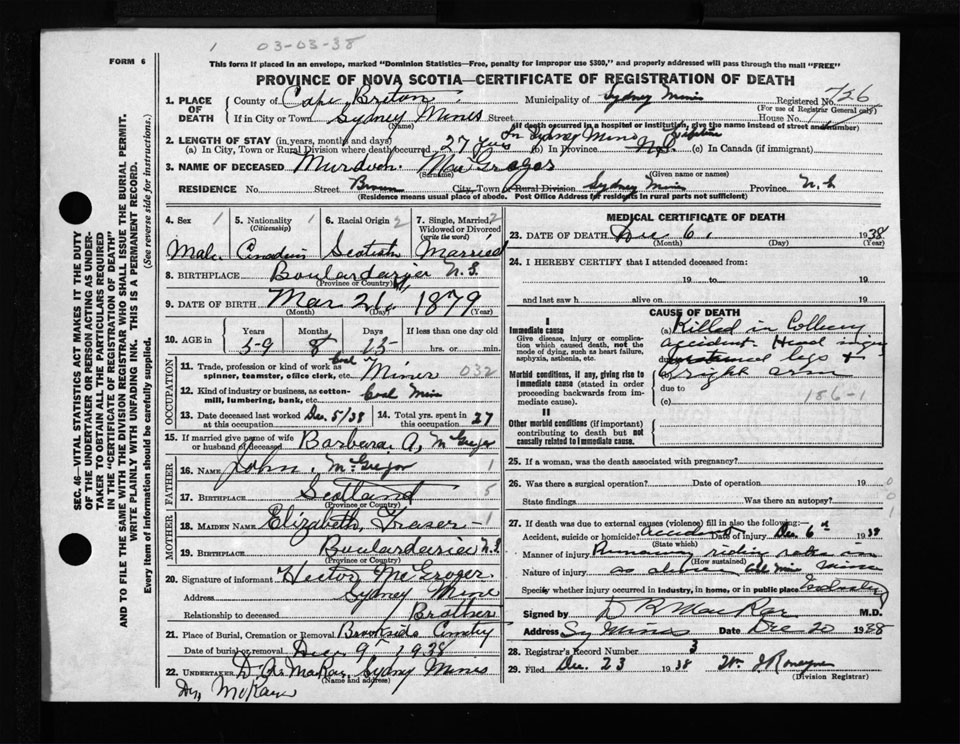 1 03-03-38
FORM 6
This form if placed in an envelope, marked "Dominion Statistics—Free, penalty for improper use $300," and properly addressed will pass through the mail "FREE"
PROVINCE OF NOVA SCOTIA—CERTIFICATE OF REGISTRATION OF DEATH
SEC. 46—VITAL STATISTICS ACT MAKES IT THE DUTY
OF THE UNDERTAKER OR PERSON ACTING AS UNDER-
TAKER TO OBTAIN ALL THE PARTICULARS REQUIRED
IN THE "CERTIFICATE OF REGISTRATION OF DEATH"
AND TO FILE THE SAME WITH THE DIVISION REGISTRAR WHO SHALL ISSUE THE BURIAL PERMIT.
WRITE PLAINLY WITH UNFADING INK. THIS IS A PERMANENT RECORD.
Every item of information should be carefully supplied. (See reverse side for instructions.)
1. PLACE OF DEATH County of Cape Breton Municipality of Sydney Mines Registered No. 7126
(For use of Registrar General only)
If in City or Town Sydney Mines Street House No.
(Name) (If death occurred in a hospital or institution, give the name instead of street and number)
2. LENGTH OF STAY (in years, months and days) In Sydney Mines
(a) In City, Town or Rural Division where death occurred 27 Yrs (b) In Province N.S. (c) In Canada (if immigrant)
3. NAME OF DECEASED Murdoch MacGregor
(Surname) (Given name or names)
RESIDENCE No. Street Brown City, Town or Rural Division Sydney Mines Province N.S.
(Residence means usual place of abode. Post Office Address for residents in rural parts not sufficient)
4. Sex 1 5. Nationality 1 6. Racial Origin 2 7. Single, Married 2
(Citizenship) Widowed or Divorced
(write the word)
Male Canadian Scotish Married
8. BIRTHPLACE Boularderie N.S.
(Province or Country)
9. DATE OF BIRTH Mar 21 1879
(Month) (Day) (Year)
10. AGE Years Months Days If less than one day old
59 8 15 hrs. or min.
OCCUPATION
11. Trade, profession or kind of work as spinner, teamster, office clerk, etc. Coal Miner 032
12. Kind of industry or business, as cotton-mill, lumbering, bank, etc. Coal Mine
13. Date deceased last worked at this occupation Dec 5/38 14. Total yrs. spent in this occupation 27
15. If married give name of wife or husband of deceased Barbara A. McGregor
FATHER
16. NAME John McGregor 1
17. BIRTHPLACE Scotland 5
(Province or Country)
MOTHER
18. MAIDEN NAME Elizabeth Fraser 1
19. BIRTHPLACE Boularderie N.S.
(Province or Country)
20. Signature of informant Hector McGregor
Address Sydney Mine
Relationship to deceased Brother
21. Place of Burial, Cremation or Removal Brookside Cemetry
Date of burial or removal Dec 9 1938
22. UNDERTAKER D A MacRae Sydney Mines
(Name and address)
MEDICAL CERTIFICATE OF DEATH
23. DATE OF DEATH Dec 6 1938
(Month) (Day) (Year)
24. I HEREBY CERTIFY that I attended deceased from:
19 to 19
and last saw h alive on 19
CAUSE OF DEATH
I
Immediate cause (a) Killed in Colliery
Give disease, injury or complication which caused death, not the mode of dying, such as heart failure, asphyxia, asthenia, etc.
accident Head injury
due to legs +
Morbid conditions, if any, giving rise to immediate cause (stated in order proceeding backwards from immediate cause).
(b) right arm
due to 186-1
(c)
II
Other morbid conditions (if important) contributing to death but not causally related to immediate cause.
25. If a woman, was the death associated with pregnancy?
26. Was there a surgical operation? Date of operation 19
State findings Was there an autopsy?
27. If death was due to external causes (violence) fill in also the following:—
Accident, suicide or homicide? Accident Date of injury Dec 6th 1938
(State which)
Manner of injury Runaway riding rake in
(How sustained) mine
Nature of injury as above
Specify whether injury occurred in industry, in home, or in public place
Signed by D R MacRae M.D.
Address Sy Mines Date Dec 20 1938
28. Registrar's Record Number 3
29. Filed Dec. 23 1938
(Division Registrar)